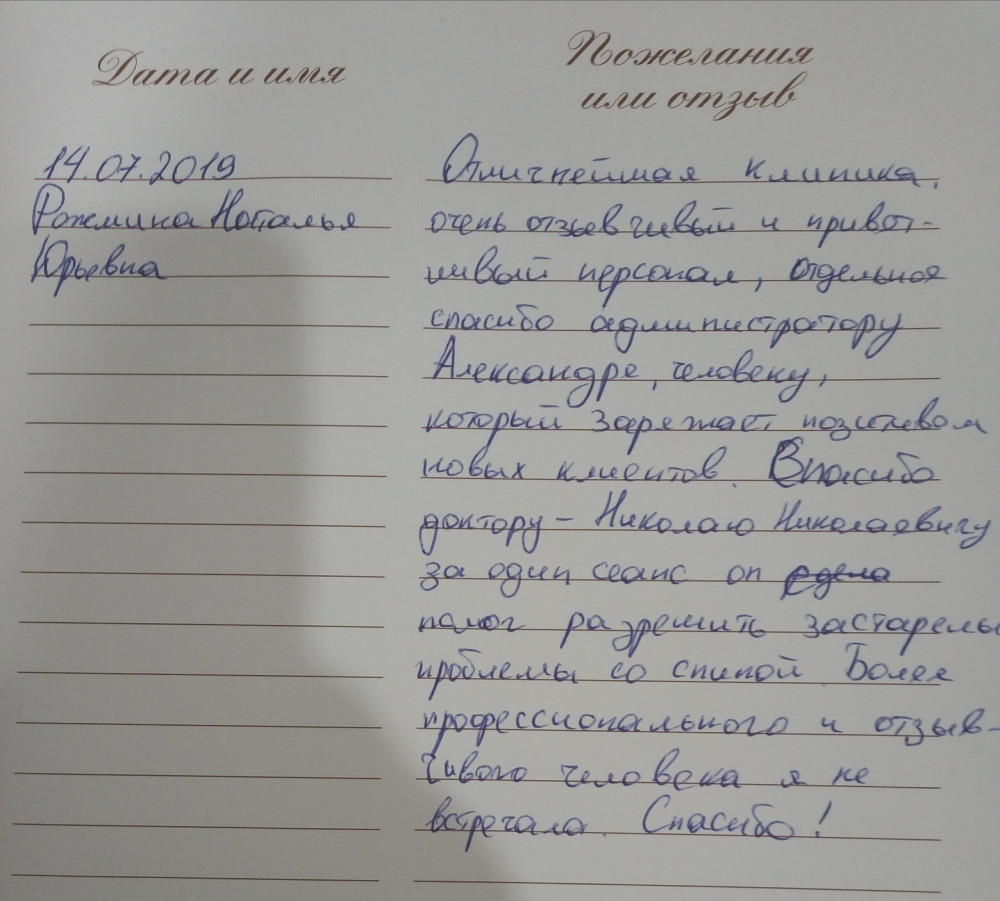 Дата и имя
Пожелания
или отзыв
14.07.2019
Наталья
Юрьевна
Отличнейшая клиника,
очень отзывчивый и привет-
ливый персонал, отдельное
спасибо администратору
Александре, человеку,
который заряжает позитивом
новых клиентов. Спасибо
доктору - Николаю Николаевичу
за один сеанс он сдела
помог разрешить застарелы
проблемы со спиной. Более
профессионального и отзыв-
чивого человека я не
встречала. Спасибо!